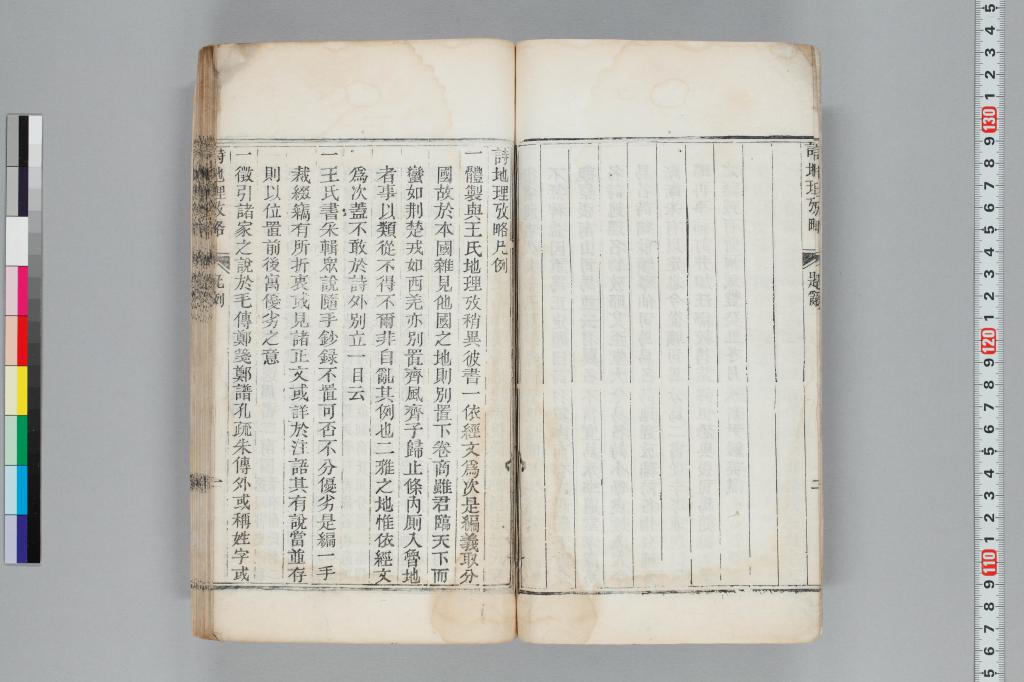 詩地理攷略
題辭
二
詩地理攷略凡例
一體製與王氏地理攷稍異彼書一依經文爲次是編義取分
國故於本國雜見他國之地則別置下卷商雖君臨天下而
蠻如荆楚戎如西羌亦別置齊風齊子歸止條內厠入魯地
者事以類從不得不爾非自亂其例也二雅之地惟依經文
爲次蓋不敢於詩外別立一目云
一王氏書采輯眾說隨手鈔録不置可否不分優劣是編一手
裁綴竊有所折衷或見諸正文或詳於注語其有說當並存
則以位置前後寓優劣之意
一徵引諸家之說於毛傳鄭箋鄭譜孔疏朱傳外或稱姓字或
詩地理攷略
凡例
一